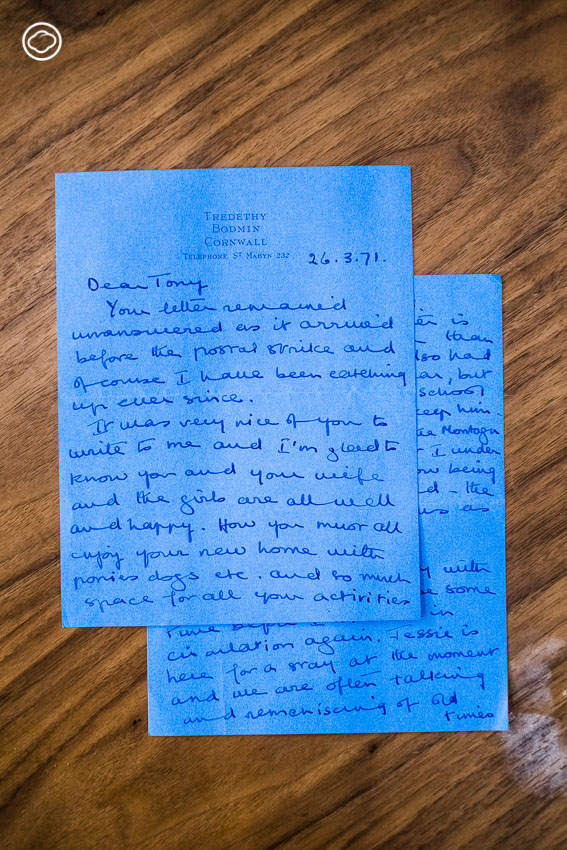 TREDETHY
BODMIN
CORNWALL
TELEPHONE ST MABYN 232
26.3.71.
Dear Tony
Your letter remained
unanswered as it arrived
before the postal strike and
of course I have been catching
up ever since.
It was very nice of you to
write to me and I'm glad to
know you and your wife
and the girls are all well
and happy. How you must all
enjoy your new home with
ponies dogs etc. and so much
space for all your activities
is
than
also had
but
school
keep him-
the Montagu
I under
now being
the
us as
with
some
time before I in
circulation again. Jessie is
here for a stay at the moment
and we are often talking
and remeniscing of old
times